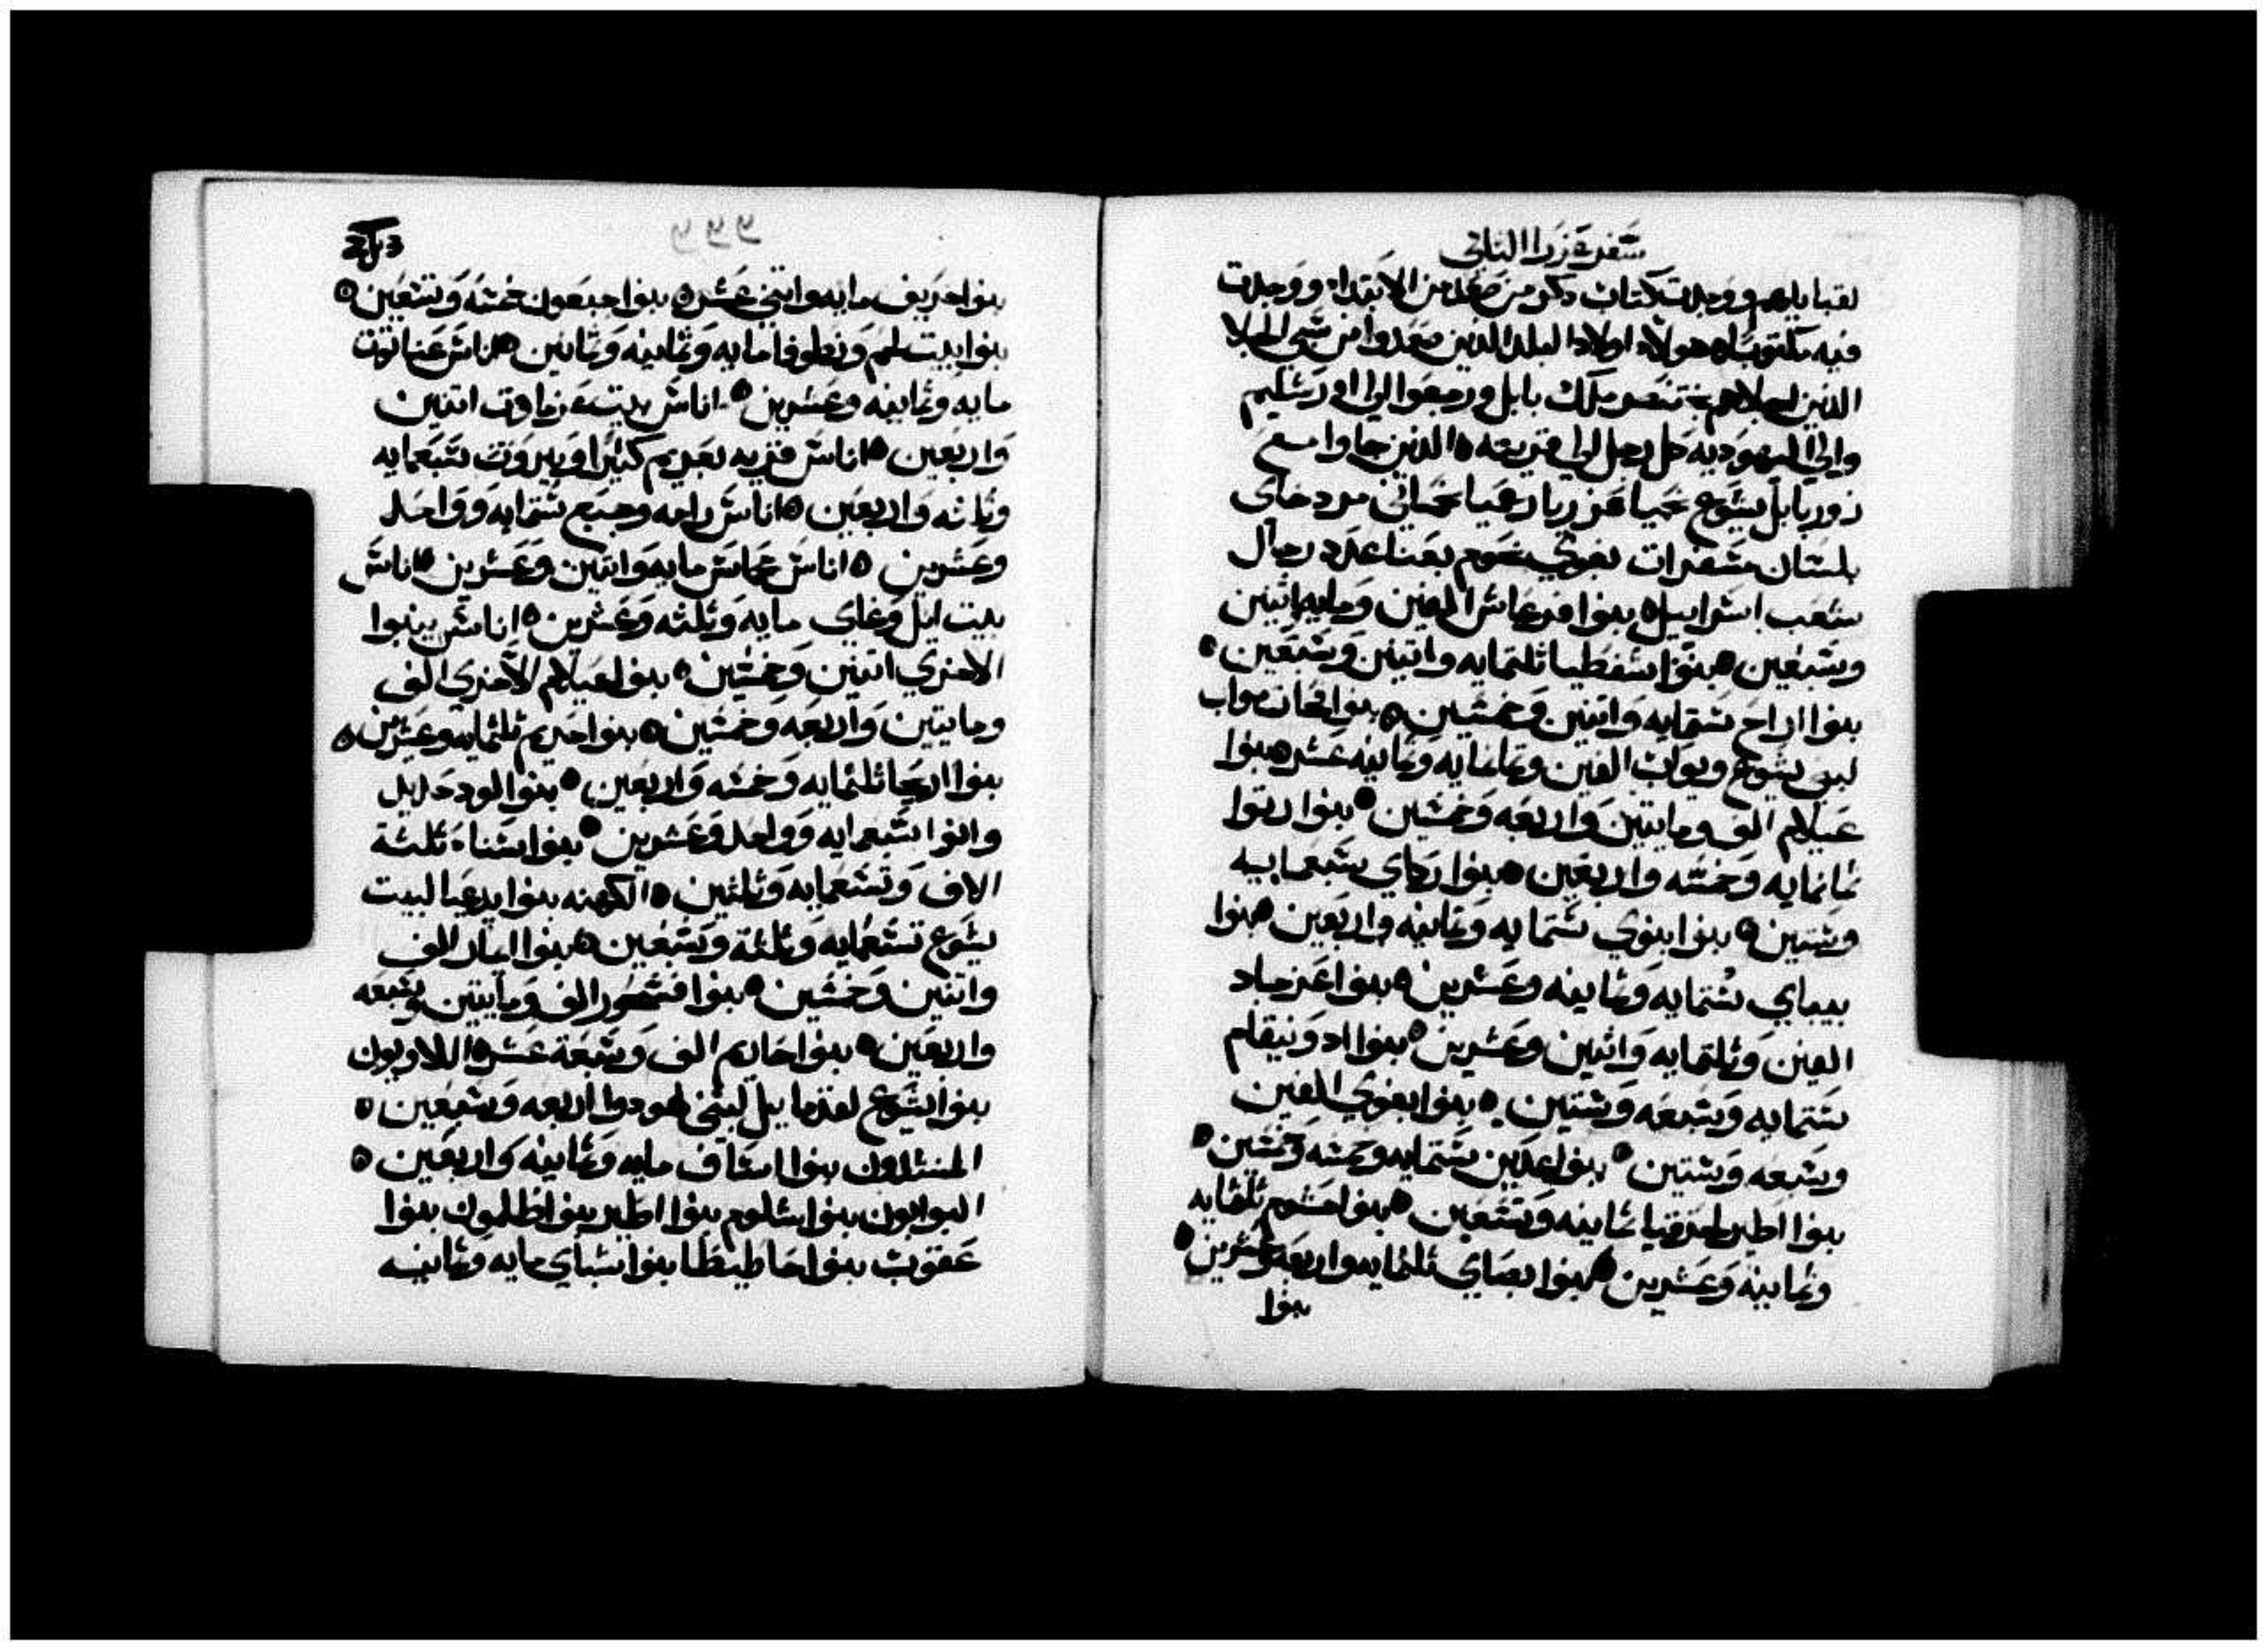 سفر عزرا الثاني
لقبايلهم ووجدت كتاب ذكر من صعد من الابتدا ووجدت
فيه مكتوب هولاء اولاد البلد الذين صعدوا من سبي الجلا
الذين اجلاهم بختنصر ملك بابل ورجعوا الي اورشليم
والي اليهوديه كل رجل الي قريته الذين جاوا مع
زوربابل يشوع نحميا عزريا رعميا نحماني مردخاي
بلشان مسفرات بغوي نحوم بعنا عدد رجال
شعب اسراييل بنوا فرعاش الفين ومايه واثنين
وسبعين بنوا شفطيا ثلتمايه واثنين وسبعين
بنوا اراح ستمايه واثنين وخمسين بنوا فحات مواب
لبني يشوع ويواب الفين وثمانمايه وثمانيه عشر بنوا
عيلام الف ومايتين واربعه وخمسين بنوا زتوا
ثمانمايه وخمسه واربعين بنوا زكاي سبعمايه
وستين بنوا بنوي ستمايه وثمانيه واربعين بنوا
بيباي ستمايه وثمانيه وعشرين بنوا عزجاد
الفين وثلتمايه واثنين وعشرين بنوا ادونيقام
ستمايه وسبعه وستين بنوا بغوي الفين
وسبعه وستين بنوا عدين ستمايه وخمسه وخمسين
بنوا اطير لحزقيا ثمانيه وتسعين بنوا حشوم ثلثمايه
وثمانيه وعشرين بنوا بصاي ثلثمايه واربعه وعشرين
بنوا
بنوا حريف مايه واثني عشر بنوا جبعون خمسه وتسعين
بنوا بيت لحم ونطوفا مايه وثمانيه وثمانين اناس عناتوت
مايه وثمانيه وعشرين اناس بيت عزماوت اثنين
واربعين اناس قريه يعريم كفيرا وبيروت سبعمايه
وثلثه واربعين اناس رامه وجبع ستمايه وواحد
وعشرين اناس مخماس مايه واثنين وعشرين اناس
بيت ايل وعاي مايه وثلثه وعشرين اناس ينبوا
الاخري اثنين وخمسين بنوا عيلام الاخري الف
ومايتين واربعه وخمسين بنوا حريم ثلثمايه وعشرين
بنوا اريحا ثلثمايه وخمسه واربعين بنوا لود حديد
وانوا سبعمايه وواحد وعشرين بنوا سناه ثلثة
الاف وتسعمايه وثلثين الكهنه بنوا يدعيا لبيت
يشوع تسعمايه وثلثة وسبعين بنوا امار الف
واثنين وخمسين بنوا فشحور الف ومايتين وسبعه
واربعين بنوا حارم الف وسبعة عشر اللاويون
بنوا يشوع لقدماييل لبني لهودوا اربعه وسبعين
المنشدون بنوا اساف مايه وثمانيه واربعين
البوابون بنوا شلوم بنوا اطير بنوا طلمون بنوا
عقوب بنوا حاطيطا بنوا شباي مايه وثمانيه